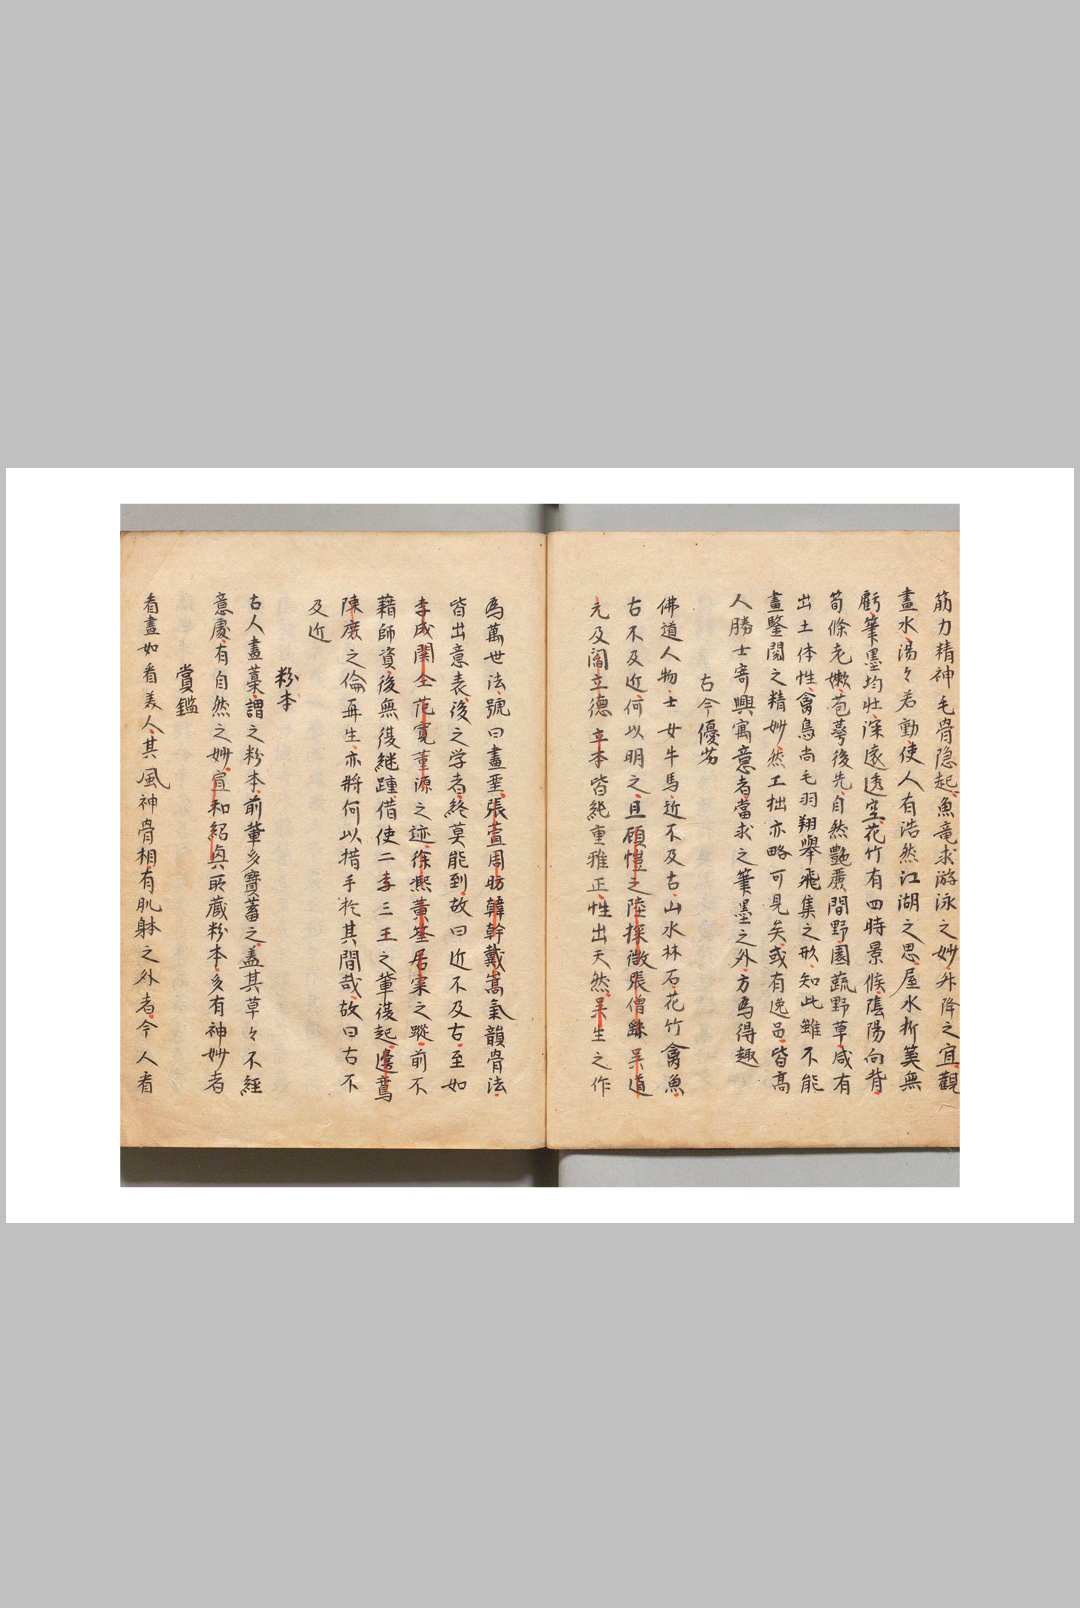 筋力精神毛骨隐起魚竜求游泳之妙外降之宜観
畫水湯々若動使人有浩然江湖之思屋木折筭無
虧筆墨均壮深遠透空花竹有四時景候陰陽向背
筍條老嫰苞萼後先自然艶麗間野園蔬野草咸有
出土体性禽鳥尚毛羽翔舉飛集之形知此雖不能
畫鑒閲之精妙然工拙亦略可見矣或有逸品皆高
人勝士寄興寓意者當求之筆墨之外方為得趣
古今優劣
佛道人物士女牛馬近不及古山水林石花竹禽魚
古不及近何以明之且顧愷之陸探微張僧繇吴道
元及閻立德立本皆純重雅正性出天然吴生之作
為萬世法號曰畫聖張萱周昉韓幹戴嵩氣韻骨法
皆出意表後之学者終莫能到故曰近不及古至如
李成関仝范寛董源之迹徐熙黄筌居寀之蹤前不
藉師資後無復継踵借使二李三王之輩復起邊鸞
陳庶之倫再生亦将何以措手於其間哉故曰古不
及近
粉本
古人畫藁謂之粉本前輩多寳蓄之盖其草々不経
意處有自然之妙宣和紹興所蔵粉本多有神妙者
賞鑑
看畫如看美人其風神骨相有肌躰之外者今人看